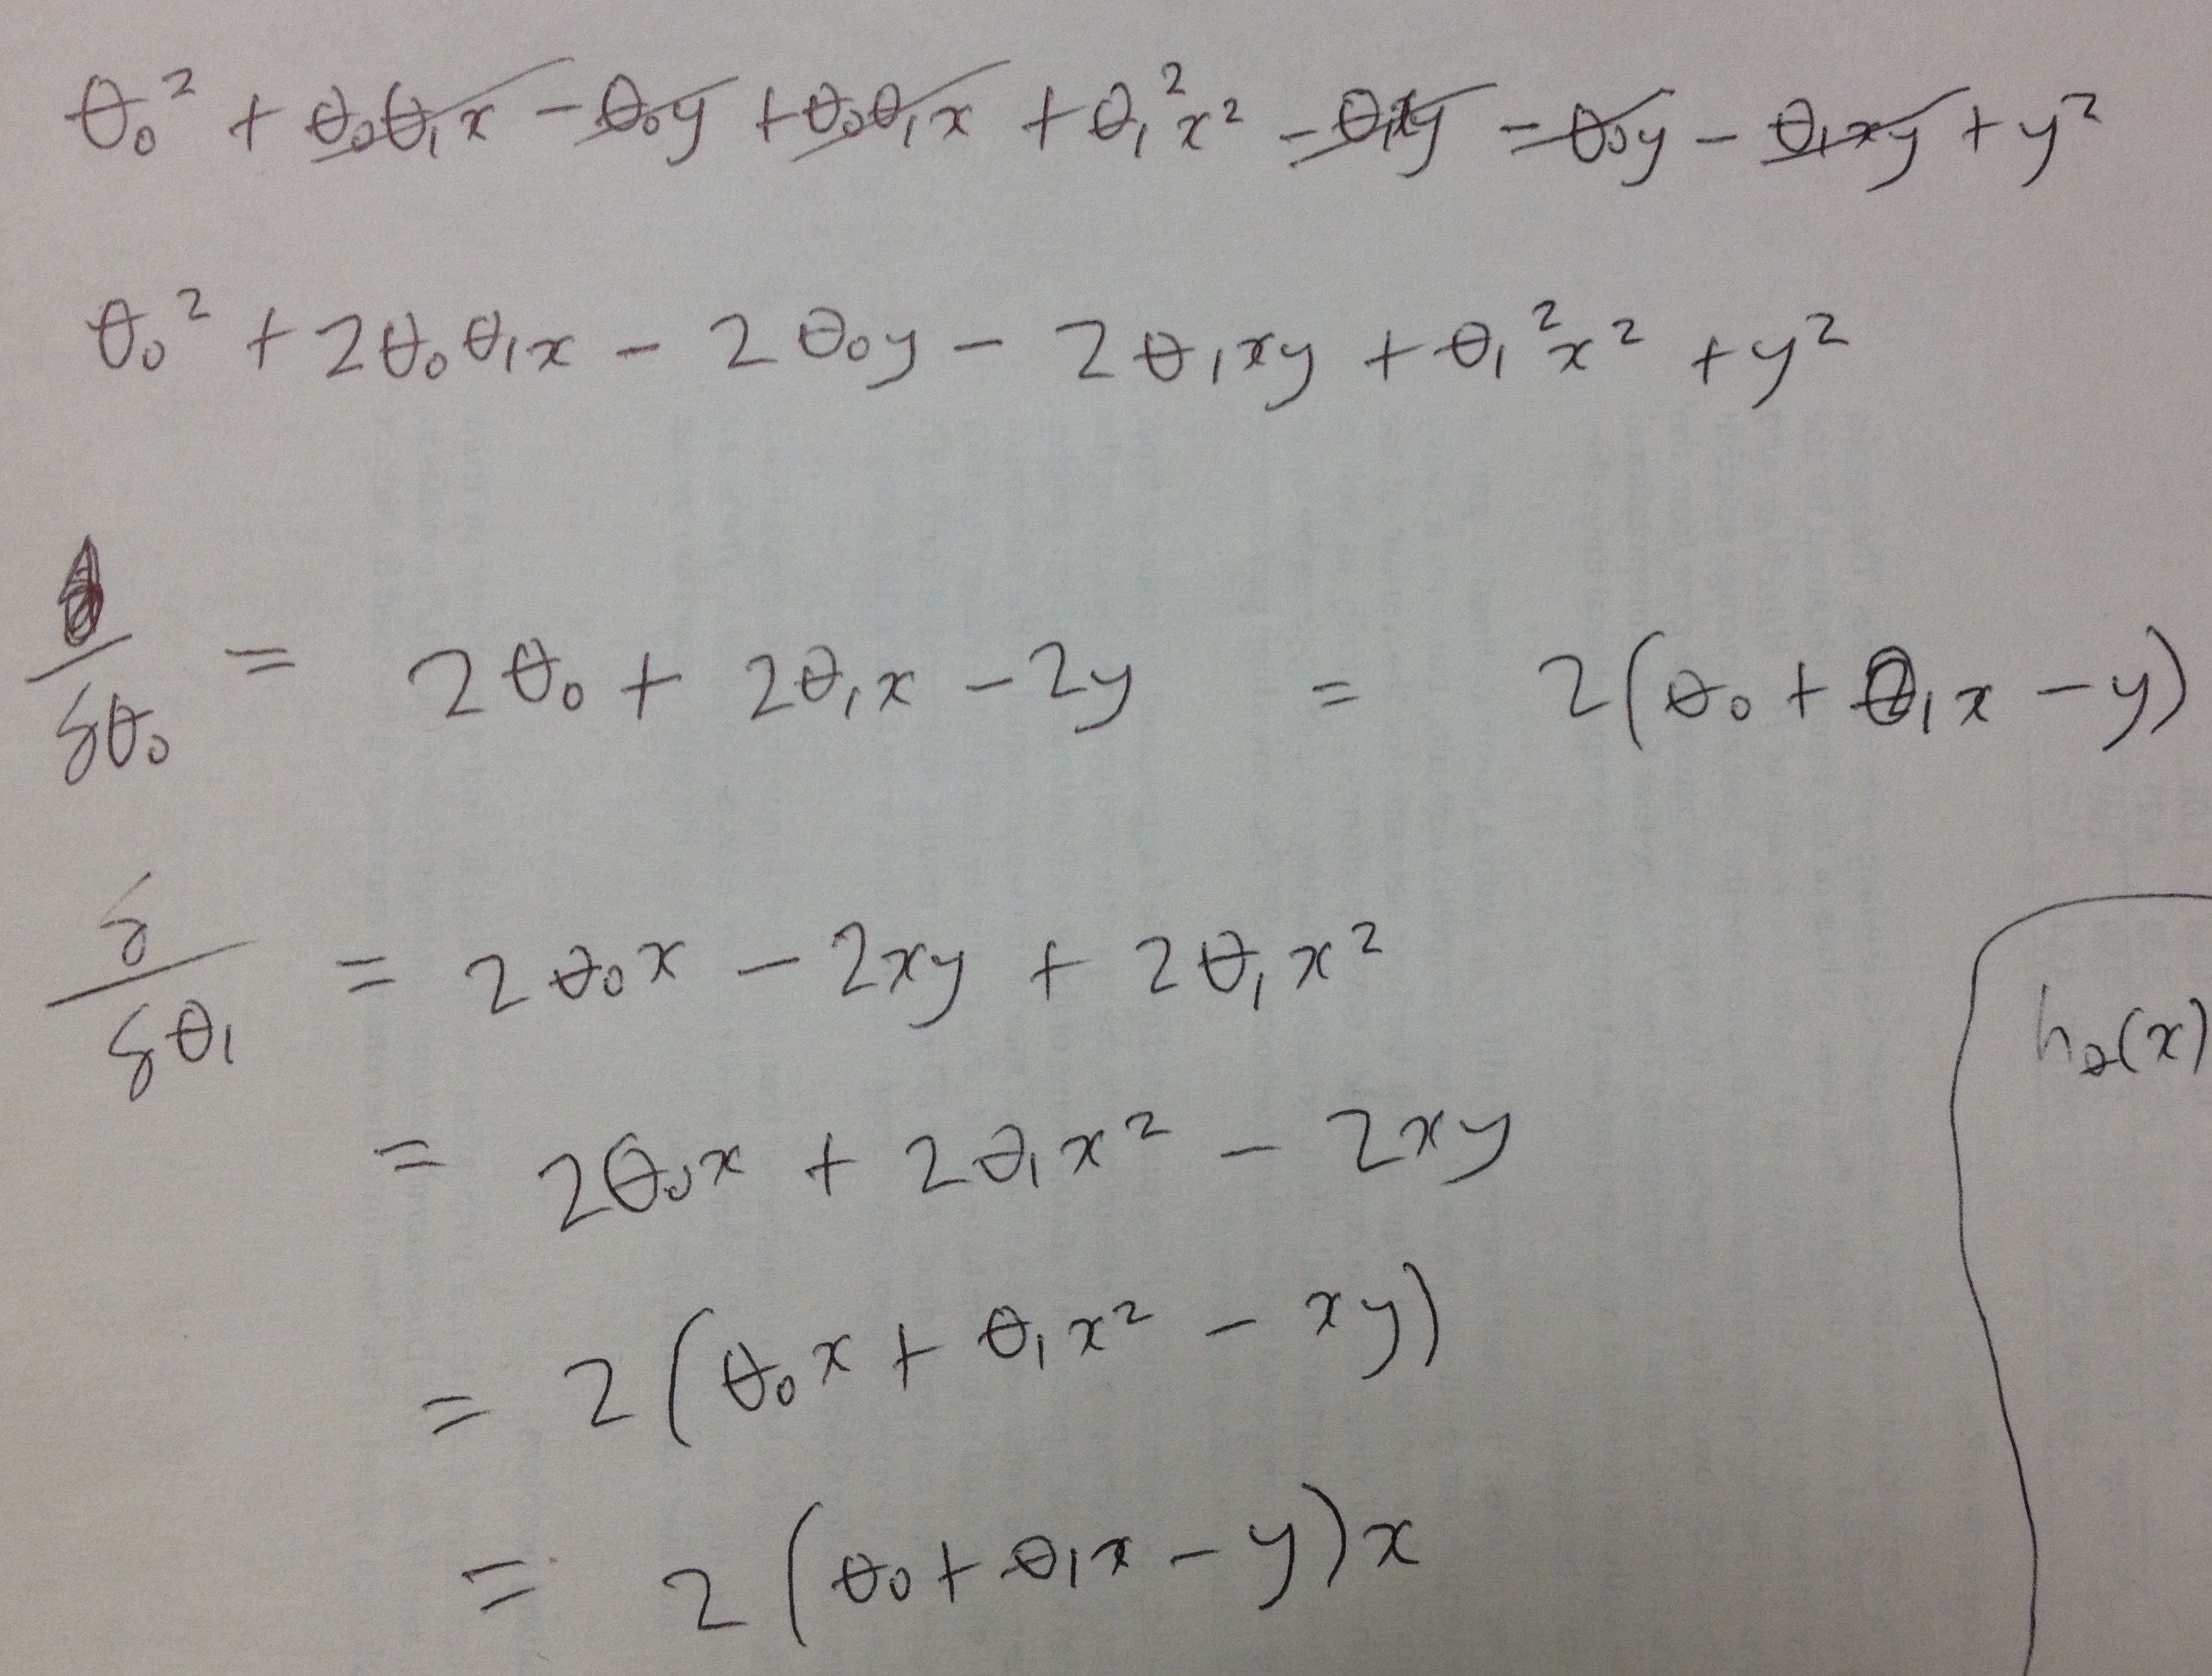 θ₀² + θ₀θ₁x − θ₀y + θ₀θ₁x + θ₁²x² − θ₁xy − θ₀y − θ₁xy + y²
θ₀² + 2θ₀θ₁x − 2θ₀y − 2θ₁xy + θ₁²x² + y²
δ/δθ₀ = 2θ₀ + 2θ₁x − 2y = 2(θ₀ + θ₁x − y)
δ/δθ₁ = 2θ₀x − 2xy + 2θ₁x²
h_θ(x)
= 2θ₀x + 2θ₁x² − 2xy
= 2(θ₀x + θ₁x² − xy)
= 2(θ₀ + θ₁x − y)x